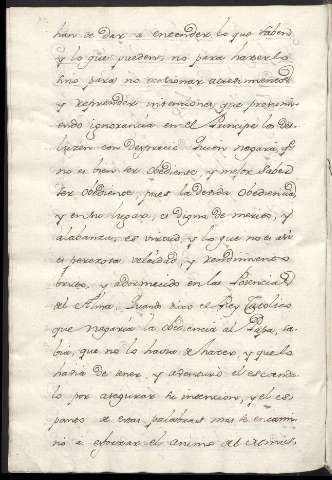 han de dar a entender lo que saben
y lo que pueden, no para hazerlo
sino para no ocasionar atrevimentos
y reprender intenciones, que presumi-
endo ignorancia en el Principe los des-
luzen con desprecio. Quien negará, qe
no es bien ser obediente, y mejor saber
ser obediente, pues la devida obediencia
y en su lugar, es digna de merito, y
alabanza, es virtud, y lo que no es asi
es perezosa velocidad, y rendimiento
bruto, y adormecido en las Potencias
del Alma. Quando dixo el Rey Catolico
que negaria la obediencia al Papa, sa-
bia, que no lo havia de hazer, y que lo
havia de temer, y aventuró el escanda-
lo por asegurar la intencion, y el es-
panto de estas palabras mas se encami-
nó a esforzar el animo del